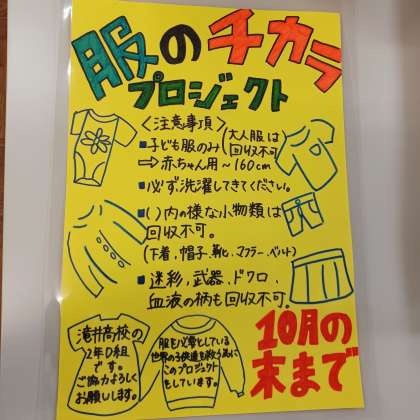 服のチカラ
プロジェクト
〈注意事項〉
■子ども服のみ(大人服は回収不可)
⇨赤ちゃん用～160cm
■必ず、洗濯してきてください。
■( )内の様な小物類は
回収不可。
(下着、帽子、靴、マフラー、ベルト)
■迷彩、武器、ドクロ、
血液の柄も回収不可。
滝井高校の
2年D組
です。
ご協力よろしく
お願いします。
服を必要としている
世界の子供達を救う為に
このプロジェクト
をしています。
10月の
末まで